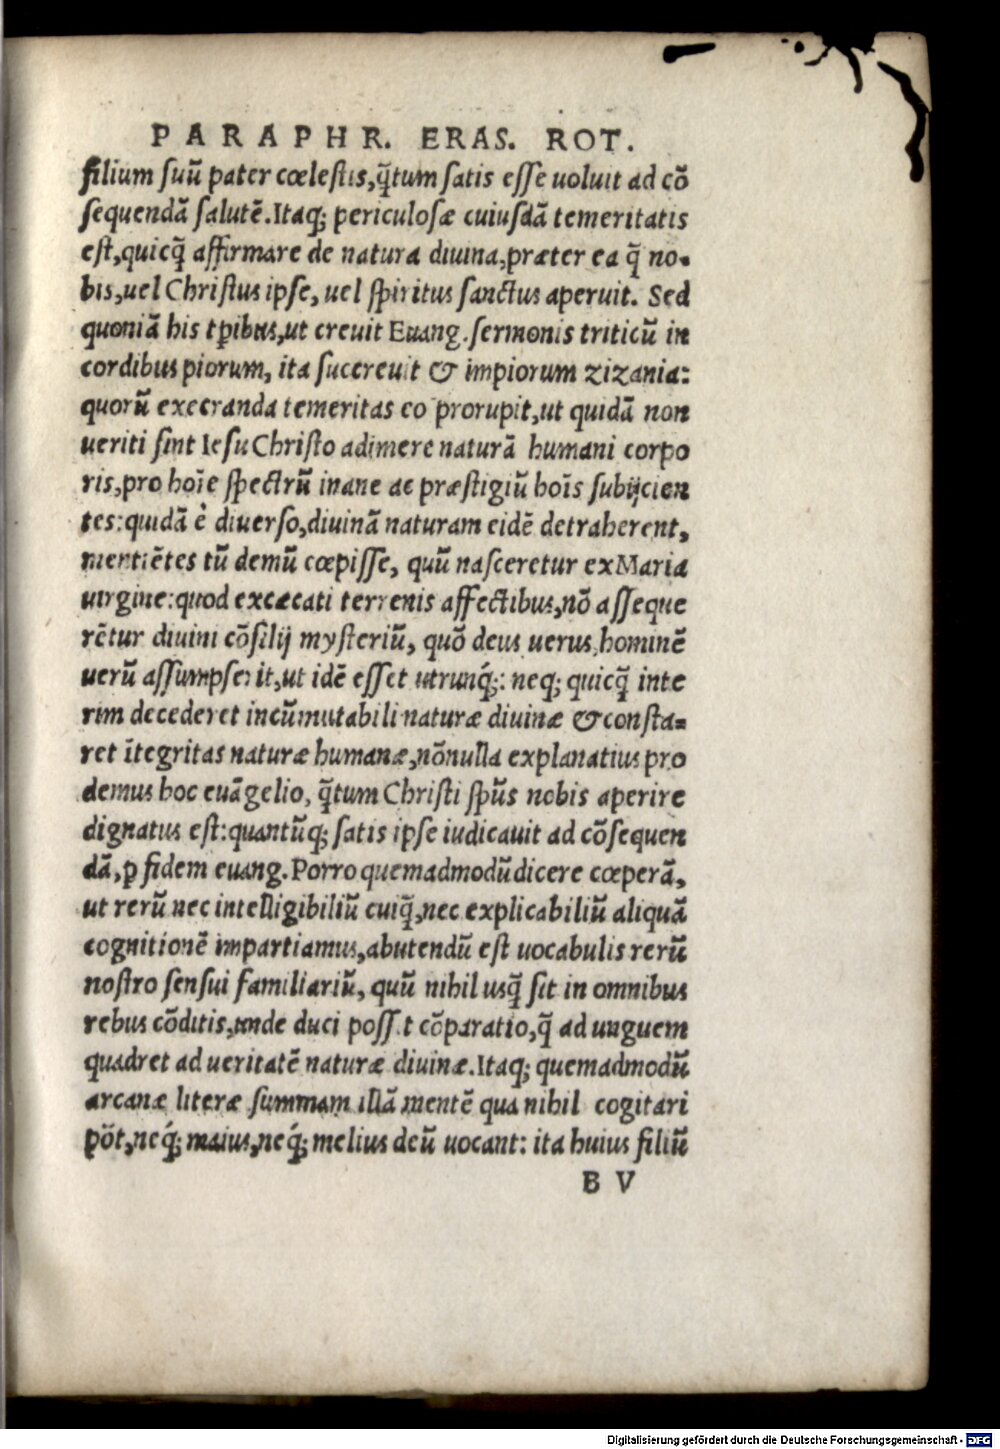 PARAPHR. ERAS. ROT.
filium suū pater cœlestis, q̃tum satis esse uoluit ad cō
sequendā salutē. Itaq; periculosæ cuiusdā temeritatis
est, quicq̃ affirmare de natura diuina, præter ea q̃ no-
bis, uel Christus ipse, uel spiritus sanctus aperuit. Sed
quoniā his tꝑibus, ut creuit Euang. sermonis triticū in
cordibus piorum, ita succreuit & impiorum zizania:
quorū execranda temeritas eo prorupit, ut quidā non
ueriti sint Iesu Christo adimere naturā humani corpo
ris, pro hoīe spectrū inane ac præstigiū hoīs subijcien
tes: quidā è diuerso, diuinā naturam eidē detraherent,
mentiētes tū demū cœpisse, quū nasceretur ex Maria
uirgine: quod excæcati terrenis affectibus, nō asseque
rētur diuini cōsilij mysteriū, quō deus uerus, hominē
uerū assumpserit, ut idē esset utrunq́;: neq; quicq̃ inte
rim decederet incūmutabili naturæ diuinæ & consta=
ret ītegritas naturæ humanæ, nōnulla explanatius pro
demus hoc euāgelio, q̃tum Christi spūs nobis aperire
dignatus est: quantūq; satis ipse iudicauit ad cōsequen
dā, ꝑ fidem euang. Porro quemadmodū dicere cœperā,
ut rerū nec intelligibiliū cuiq̃, nec explicabiliū aliquā
cognitionē impartiamus, abutendū est uocabulis rerū
nostro sensui familiariū, quū nihil usq̃ sit in omnibus
rebus cōditis, unde duci poss t cōparatio, q̃ ad unguem
quadret ad ueritatē naturæ diuinæ. Itaq; quemadmodū
arcanæ literæ summam illā mentē qua nihil cogitari
pōt, neq́; maius, neq́; melius deū uocant: ita huius filiū
B V
Digitalisierung gefördert durch die Deutsche Forschungsgemeinschaft - DFG